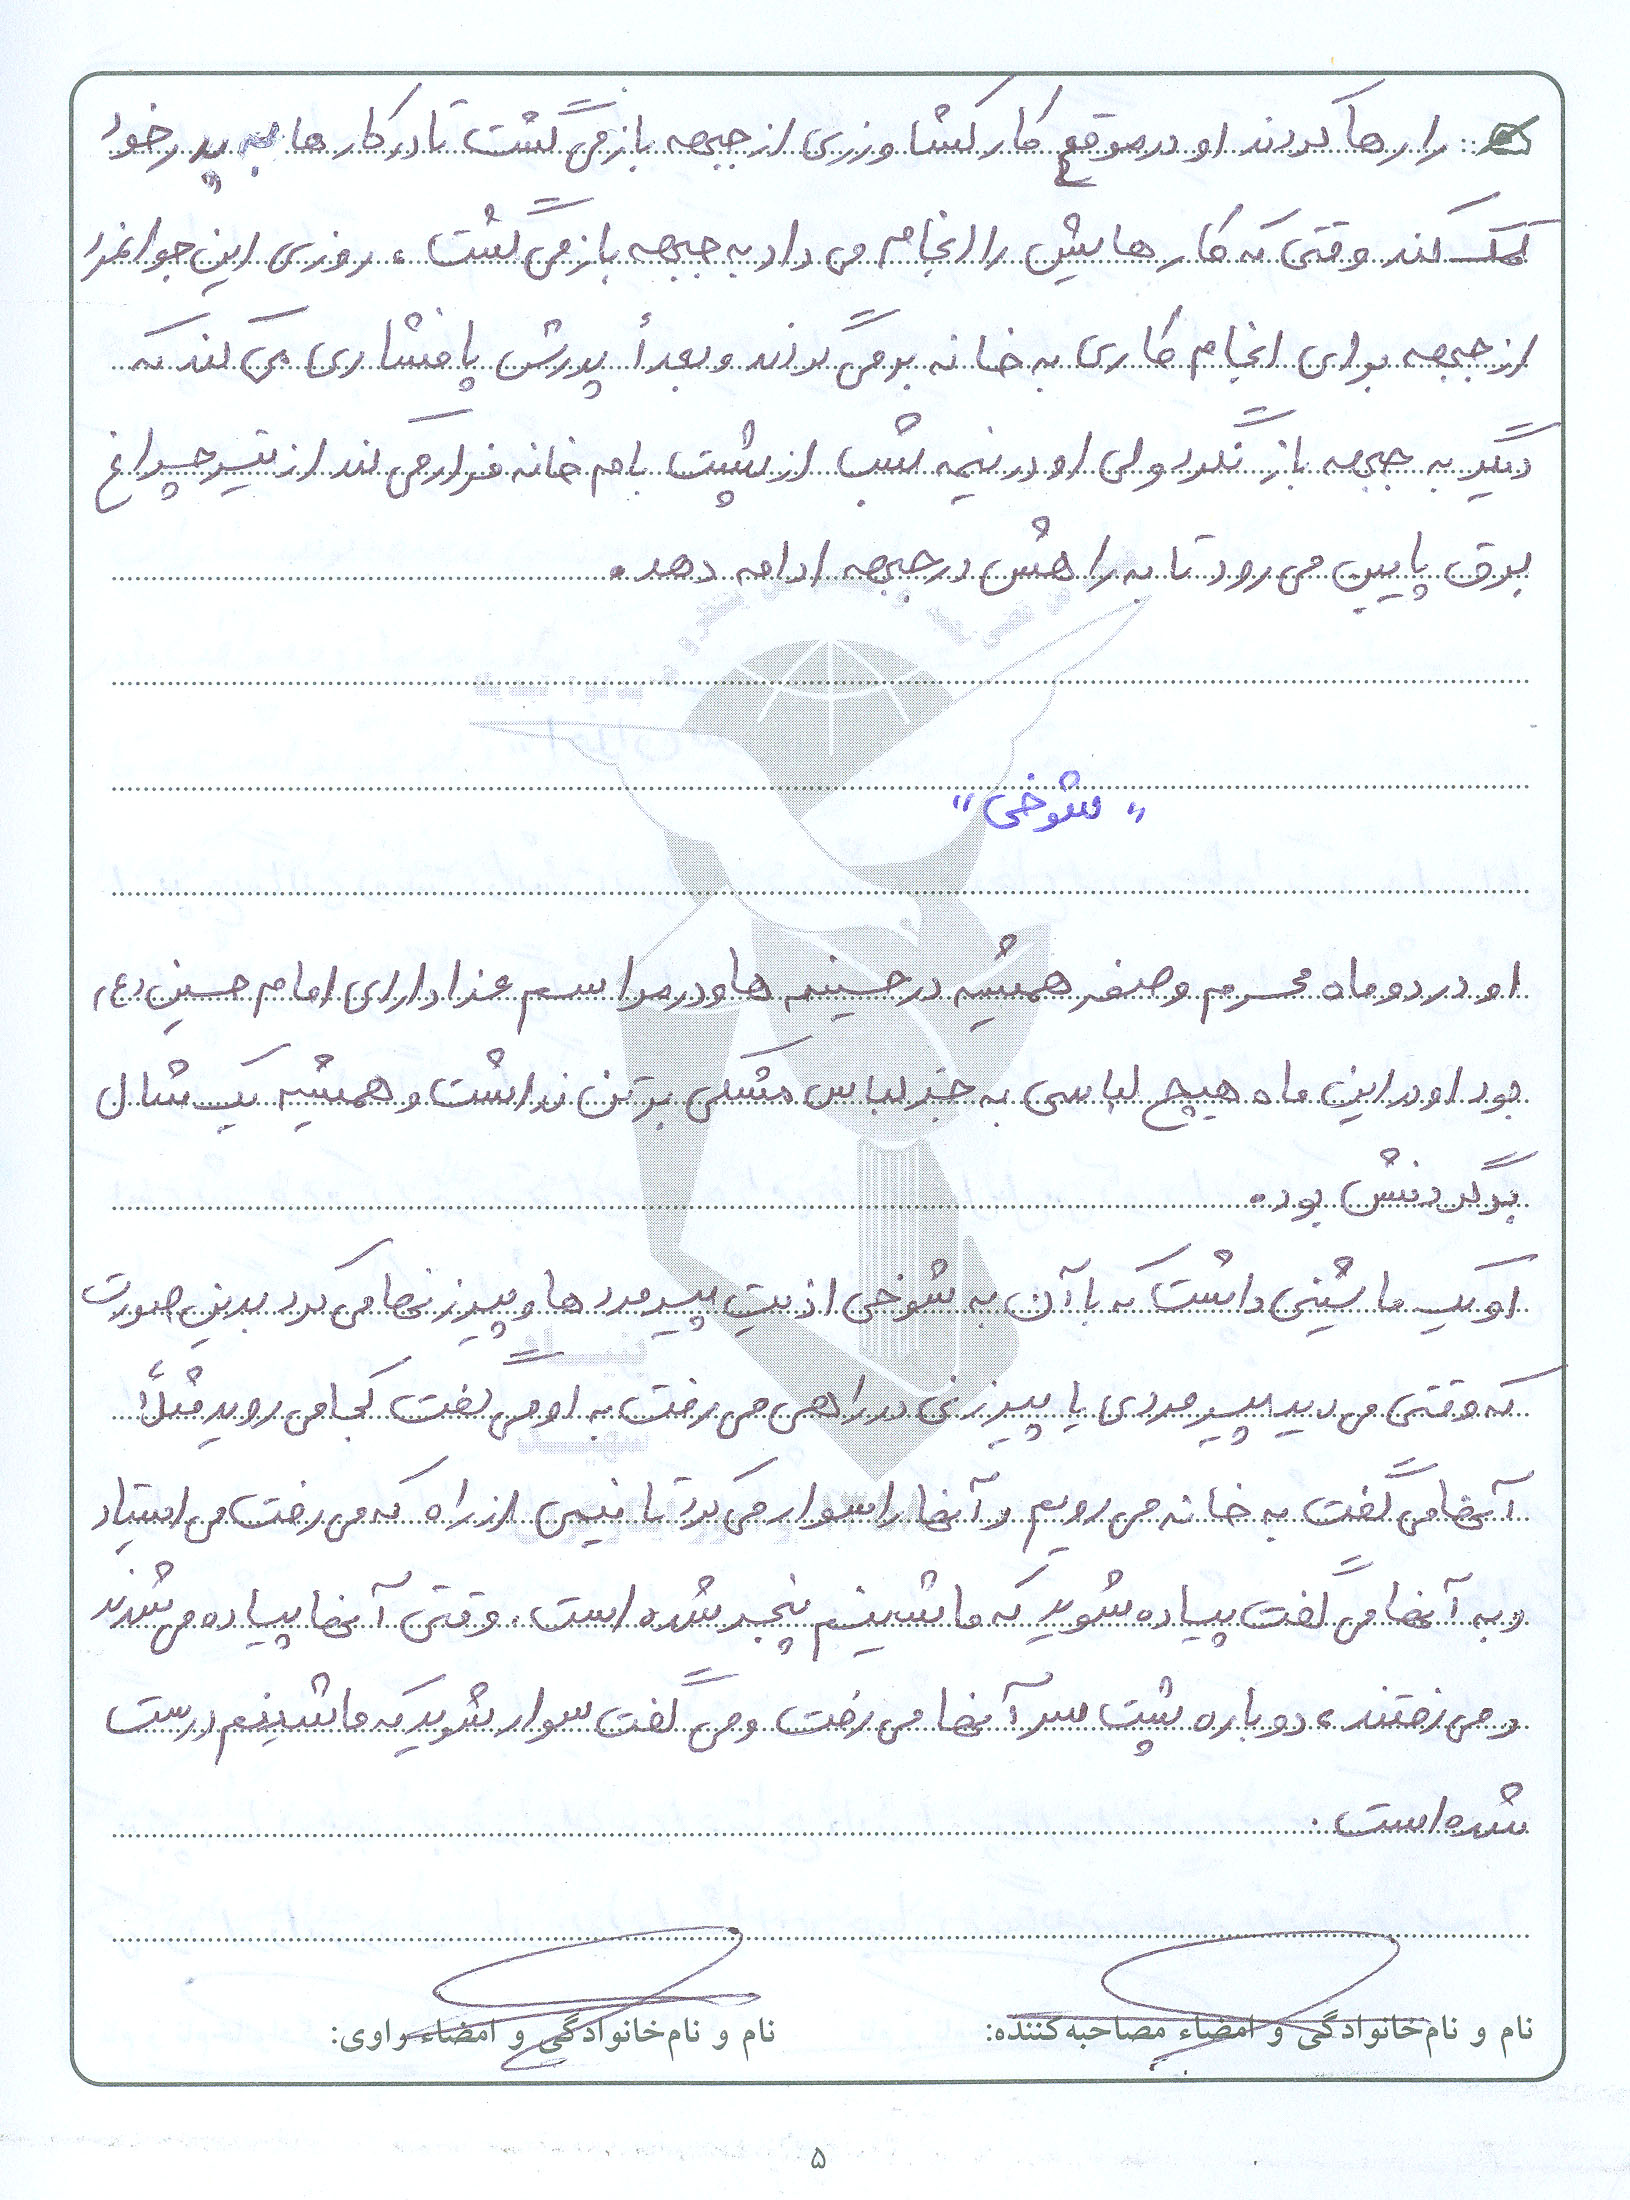 را رها کردند او در موقع کار کشاورزی از جبهه بازمی گشت تا در کارها به پدر خود
کمک کند وقتی که کارهایش را انجام می داد به جبهه باز می گشت ، روزی این جوانمرد
از جبهه برای انجام کاری به خانه برمی گردند و بعداً پدرش پافشاری می کند که
دیگر به جبهه باز نگردد ولی او در نیمه شب از پشت بام خانه فرار می کند از تیر چراغ
برق پایین می رود تا به راهش در جبهه ادامه دهد.
"شوخی"
او در دو ماه محرم و صفر همیشه در حسینیه ها و در مراسم عزاداری امام حسین (ع)
بود او در این ماه هیچ لباسی به جز لباس مشکی بر تن نداشت و همیشه یک شال
بر گردنش بود.
او یک ماشینی داشت که با آن به شوخی اذیت پیرمردها و پیرزنها می کرد بدین صورت
که وقتی می دید پیرمردی یا پیرزنی در راهی می رفت به او می گفت کجا می روید مثلاً
آنها می گفت به خانه می رویم و آنها را سوار می کرد تا نیمی از راه که می رفت می ایستاد
و به آنها می گفت پیاده شوید که ماشینم پنچر شده است. وقتی آنها پیاده می شدند
و می رفتند، دوباره پشت سر آنها می رفت و می گفت سوار شوید که ماشینم درست
شده است.
نام و نام‌خانوادگی و امضاء مصاحبه‌کننده:
نام و نام‌خانوادگی و امضاء راوی:
۵